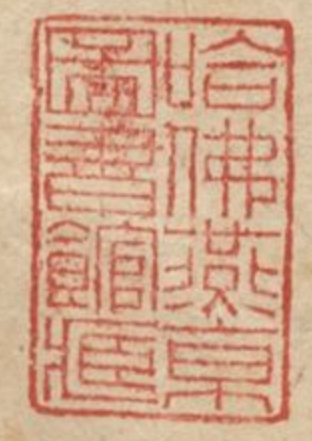 哈佛燕京
圖書館藏